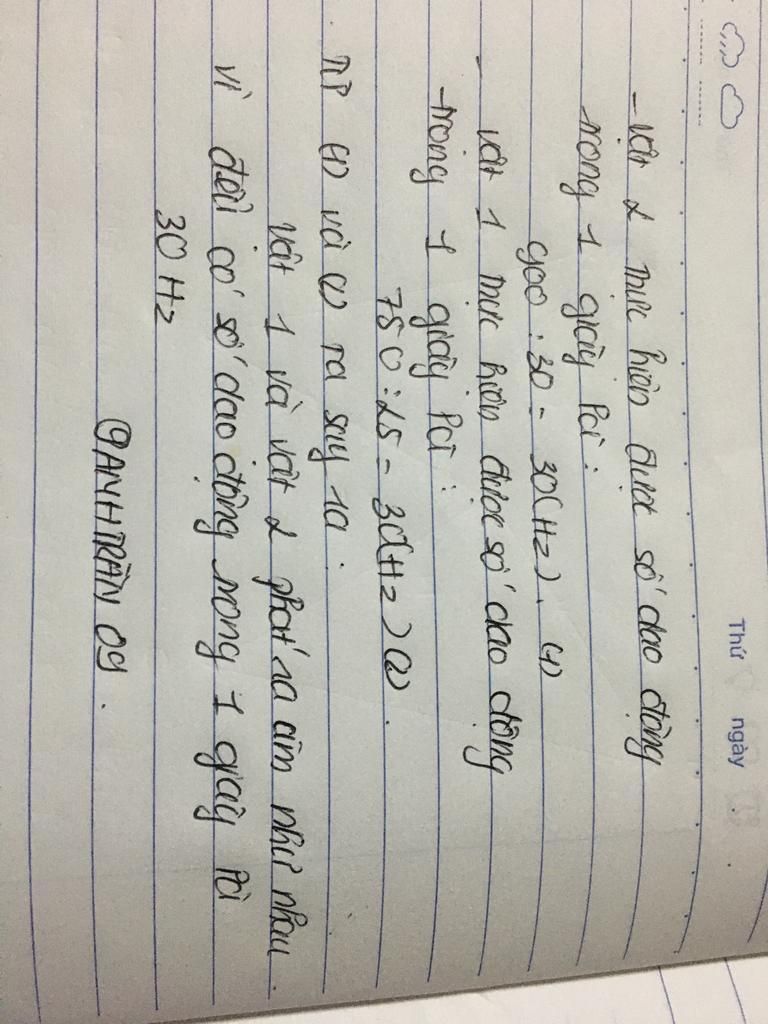 Thứ ngày
- Vật 2 thực hiện được số dao động
trong 1 giây là :
900 : 30 = 30(Hz). (1)
- vật 1 thực hiện được số dao động
trong 1 giây là :
750 : 25 = 30(Hz) (2).
Từ (1) và (2) ta suy ra.
vật 1 và vật 2 phát ra âm như nhau.
vì đều có số dao động trong 1 giây là
30 Hz
@ANHTRẦN 09.